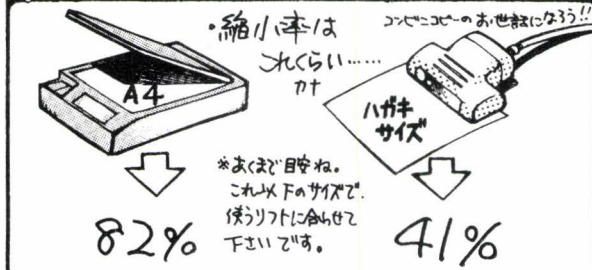 ・縮小率は
これくらい……
カナ
コンビニコピーのお世話になろう!!
A4
ハガキ
サイズ
82%
※あくまで目安ね。
これ以下のサイズで、
使うソフトに合わせて
下さいです。
41%